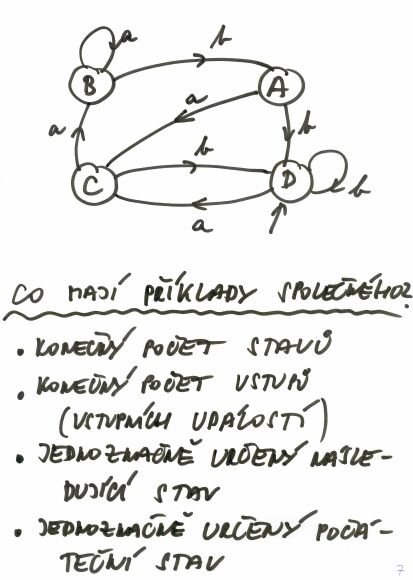 a
b
B
A
a
a
b
b
C
D
b
a
CO MAJÍ PŘÍKLADY SPOLEČNÉHO?
• KONEČNÝ POČET STAVŮ
• KONEČNÝ POČET VSTUPŮ
(VSTUPNÍCH UDÁLOSTÍ)
• JEDNOZNAČNĚ URČENÝ NÁSLE-
DUJÍCÍ STAV
• JEDNOZNAČNĚ URČENÝ POČÁ-
TEČNÍ STAV
7